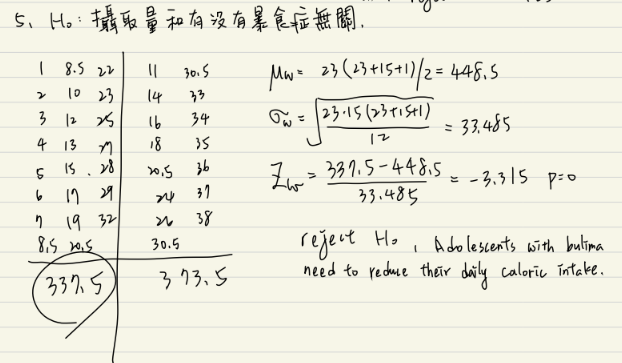 5、H₀: 攝取量和有沒有暴食症無關.
1 8.5 22 11 30.5
2 10 23 14 33
3 12 25 16 34
4 13 27 18 35
5 15. 28 20.5 36
6 17 29 24 37
7 19 32 26 38
8.5 20.5 30.5
337.5 373.5
μw = 23(23+15+1)/2 = 448.5
σw = √(23·15(23+15+1)/12) = 33.485
Zw = (337.5-448.5)/33.485 = -3.315 p=0
reject H₀, Adolescents with bulima
need to reduce their daily caloric intake.